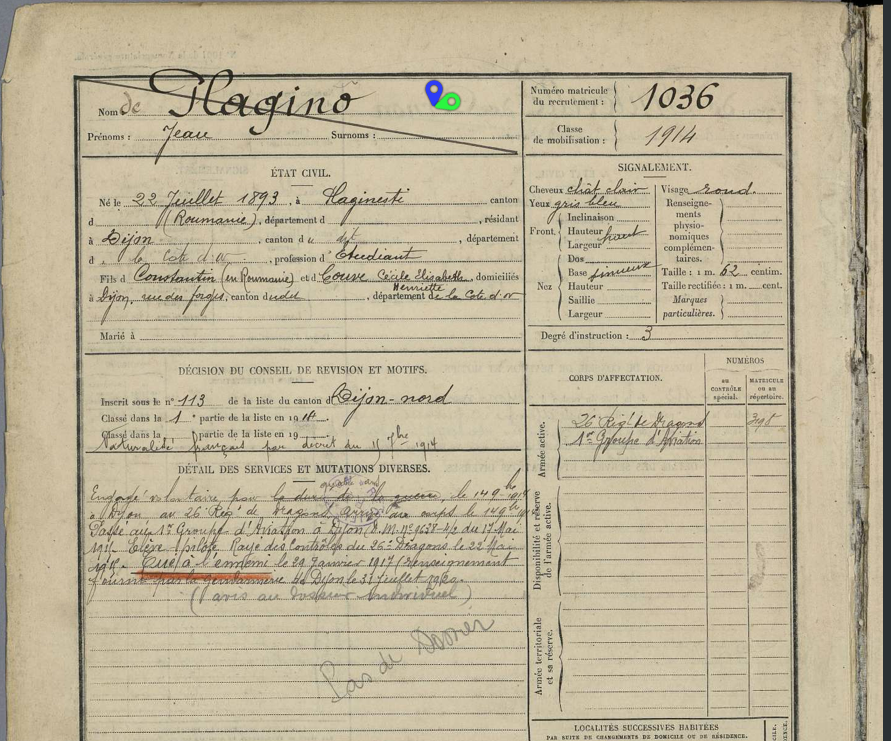 Nom de Plagino
Prénoms : Jean Surnoms :
Numéro matricule du recrutement : 1036
Classe de mobilisation : 1914
ÉTAT CIVIL.
Né le 22 Juillet 1893, à Plaginesti canton
d (Roumanie), département d , résidant
à Dijon , canton du dit , département
d e la Cote d'or , profession d' Etudiant
Fils d e Constantin (en Roumanie) et d e Couve Cécile Elisabeth Henriette, domiciliés
à Dijon, rue des forges, canton dudit , département de la Cote d'or
Marié à
SIGNALEMENT.
Cheveux chât clair
Yeux gris bleu
Front. Inclinaison
Hauteur
Largeur haut
Nez Dos
Base sinueux
Hauteur
Saillie
Largeur
Visage rond.
Renseignements physionomiques complémentaires.
Taille : 1 m. 62 centim.
Taille rectifiée : 1 m. cent.
Marques particulières.
Degré d'instruction : 3
DÉCISION DU CONSEIL DE REVISION ET MOTIFS.
Inscrit sous le n° 113 de la liste du canton de Dijon-nord
Classé dans la 1e partie de la liste en 19
Classé dans la partie de la liste en 19
Naturalisé français par décret du 7bre 1914
DÉTAIL DES SERVICES ET MUTATIONS DIVERSES.
Engagé volontaire pour la durée de la guerre, le 14 9bre 1914
à Dijon au 26 Rég' de Dragons, arrivé au corps le 14 9bre
Passé au 1er Groupe d'Aviation à Dijon D. M. n° 9638 du 17 Mai
Elève pilote. Rayé des Contrôles du 26e Dragons le 22 Mai
Tué à l'ennemi le 29 Janvier 1917 (renseignement
fourni par la Gendarmerie de Dijon le 31 Juillet 1920.
(avis au dossier individuel)
Pas de Dossier
CORPS D'AFFECTATION.
NUMÉROS
AU CONTRÔLE spécial.
MATRICULE OU AU répertoire.
Armée active.
26 Régt de Dragons
1er Groupe d'Aviation
Disponibilité et réserve de l'armée active.
Armée territoriale et sa réserve.
LOCALITÉS SUCCESSIVES HABITÉES
PAR SUITE DE CHANGEMENTS DE DOMICILE OU DE RÉSIDENCE.